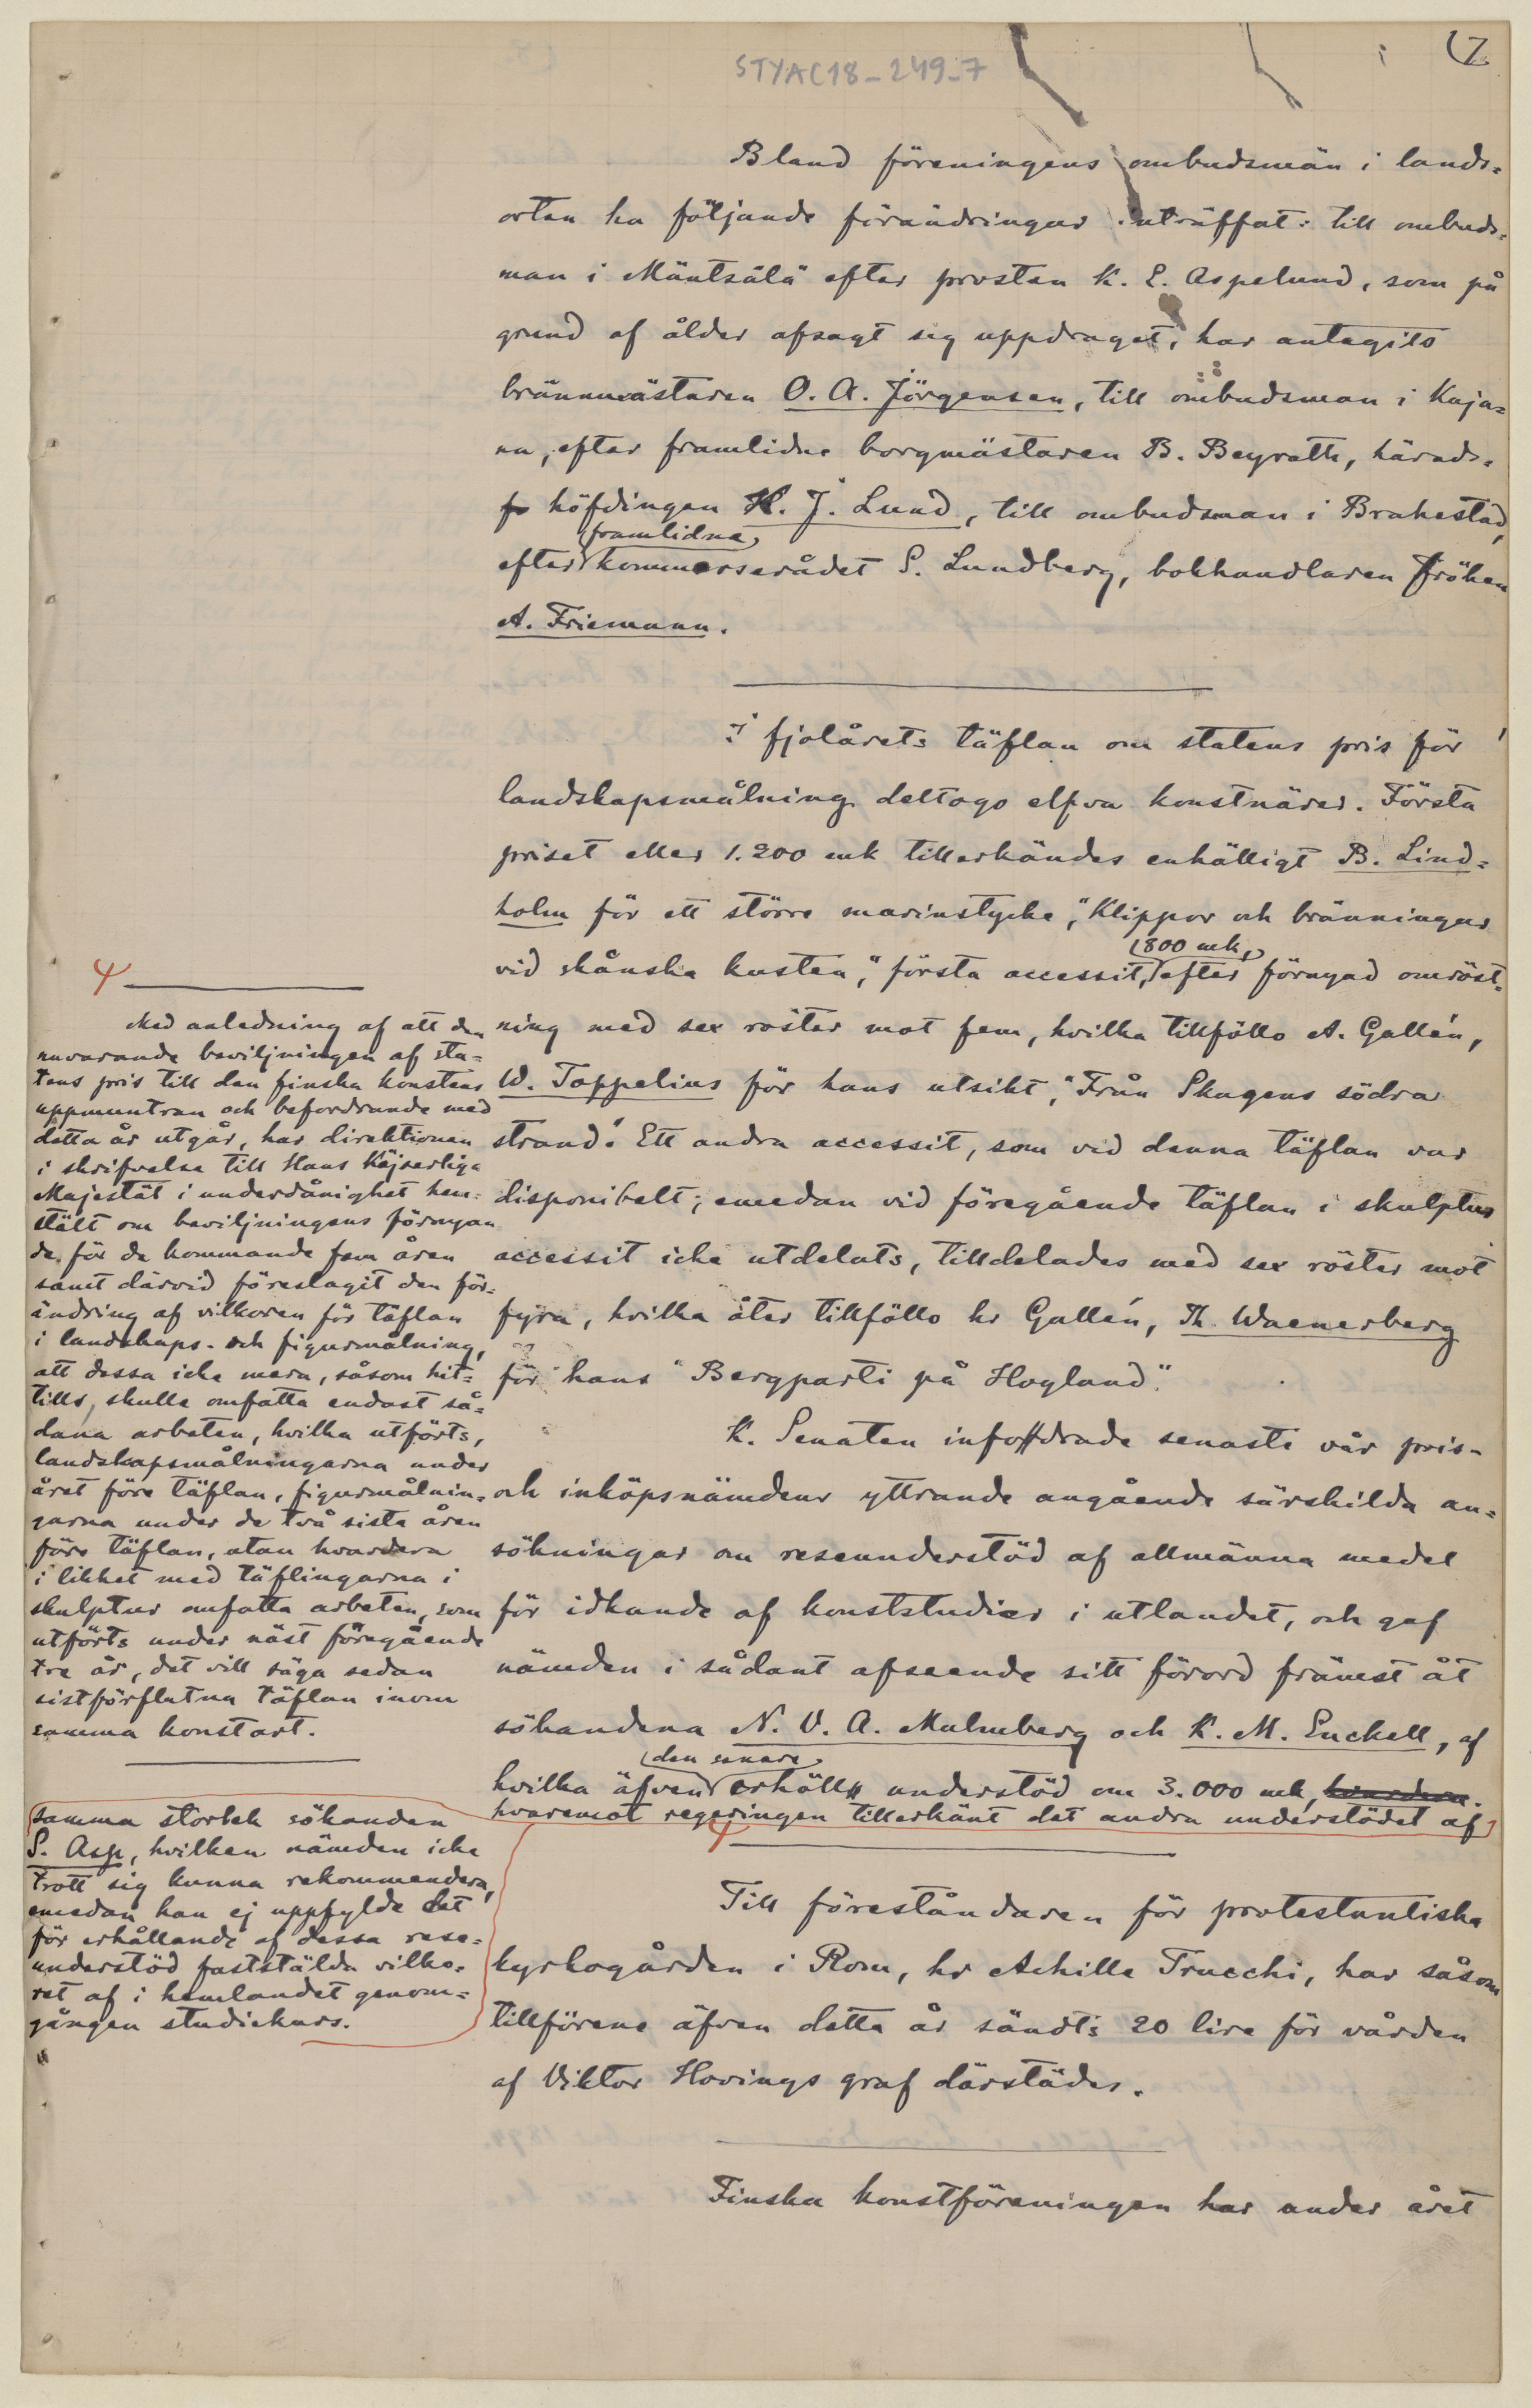 STYAC18-249-7
(7
Bland föreningens ombudsmän i lands=
orten ha följande förändringar inträffat: till ombuds=
man i Mäntsälä efter prosten K. E. Aspelund, som på
grund af ålder afsagt sig uppdraget, har antagits
brännmästaren O. A. Jörgensen, till ombudsman i Kaja=
na, efter framlidne borgmästaren B. Beyrath, härads=
höfdingen H. J. Lund, till ombudsman i Brahestad,
framlidna
efter kommerserådet S. Lundberg, bokhandlaren fröken
A. Friemann.
I fjolårets täflan om statens pris för
landskapsmålning deltogo elfva konstnärer. Första
priset eller 1.200 mk tillerkändes enhälligt B. Lind=
holm för ett större marinstycke, "Klippor och bränningar
800 mk,
vid skånska kusten", första accessit, efter förnyad omröst=
ning med sex röster mot fem, hvilka tillföllo A. Gallén,
W. Toppelius för hans utsikt, "Från Skagens södra
strand". Ett andra accessit, som vid denna täflan var
disponibelt, emedan vid föregående täflan i skulptur
accessit icke utdelats, tilldelades med sex röster mot
fyra, hvilka åter tillföllo hr Gallén, Th. Waenerberg
för hans "Bergparti på Hogland".
K. Senaten infordrade senaste vår pris-
och inköpsnämdens yttrande angående särskilda an=
sökningar om reseunderstöd af allmänna medel
för idkande af konststudier i utlandet, och gaf
nämden i sådant afseende sitt förord främst åt
sökandena N. V. A. Malmberg och K. M. Enckell, af
den senare
hvilka äfven erhöll understöd om 3.000 mk, hvardera.
hvaremot regeringen tillerkänt det andra understödet af
Till föreståndaren för protestantiska
kyrkogården i Rom, hr Achille Trucchi, har såsom
tillförene äfven detta år sändts 20 lire för vården
af Viktor Hovings graf därstädes.
Finska konstföreningen har under året
Med anledning af att den
nuvarande beviljningen af sta=
tens pris till den finska konstens
uppmuntran och befordrande med
detta år utgår, har direktionen
i skrifvelse till Hans Kejserliga
Majestät i underdånighet hem=
stält om beviljningens förnyan
de för de kommande fem åren
samt därvid föreslagit den för=
ändring af vilkoren för täflan
i landskaps- och figurmålning,
att dessa icke mera, såsom hit=
tills, skulle omfatta endast så=
dana arbeten, hvilka utförts,
landskapsmålningarna under
året före täflan, figurmålnin=
garna under de två sista åren
före täflan, utan hvardera
i likhet med täflingarna i
skulptur omfatta arbeten, som
utförts under näst föregående
tre år, det vill säga sedan
sistförflutna täflan inom
samma konstart.
samma storlek sökanden
S. Asp, hvilken nämden icke
trott sig kunna rekommendera,
emedan han ej uppfylde det
för erhållande af dessa rese=
understöd faststälda vilko=
ret af i hemlandet genom=
gången studiekurs.